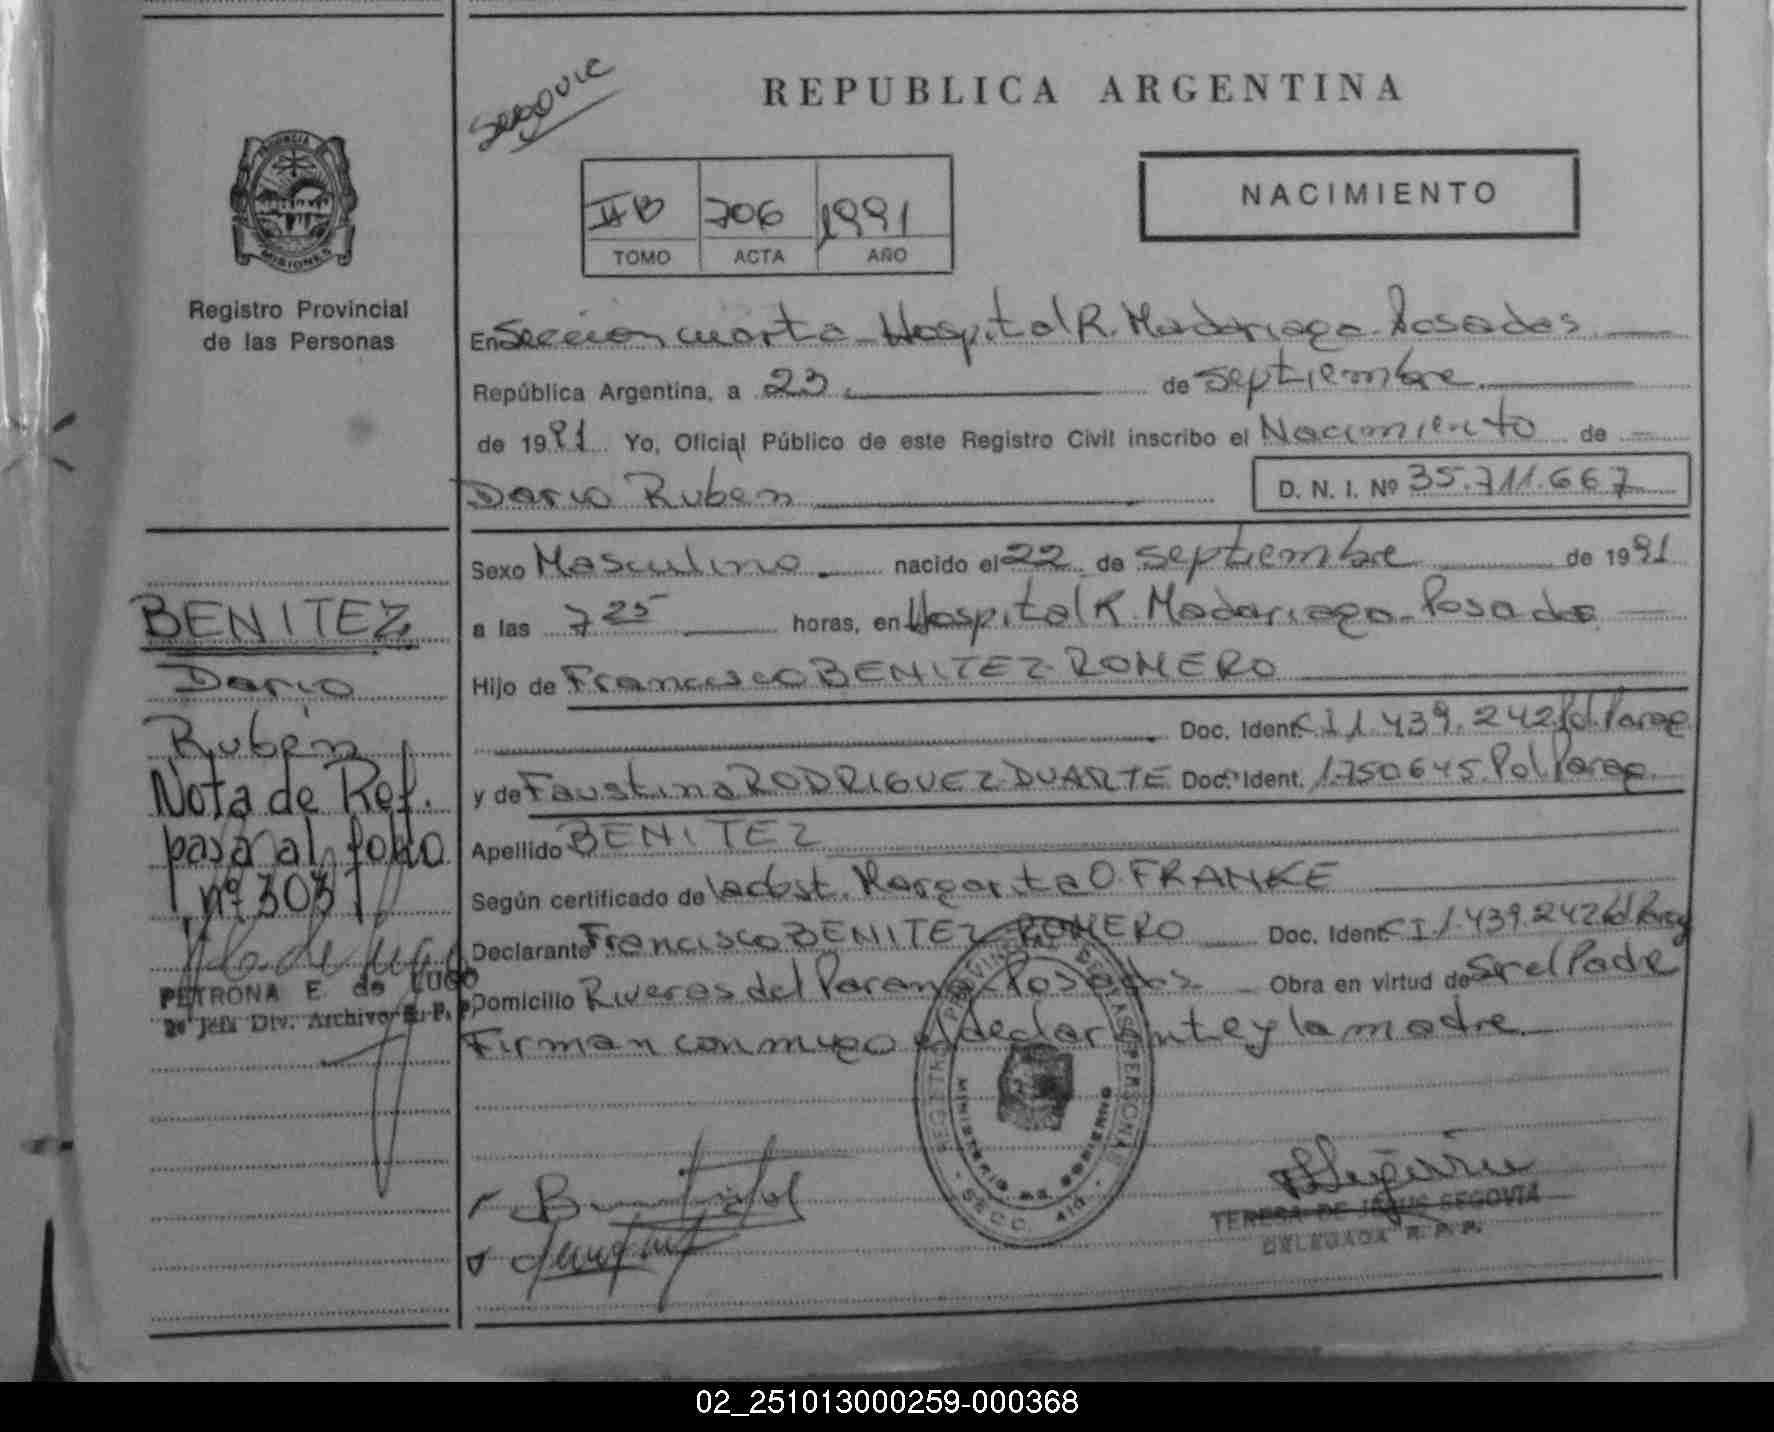 REPUBLICA ARGENTINA
NACIMIENTO
IIB 706 1991
TOMO ACTA AÑO
PROVINCIA
MISIONES
Registro Provincial
de las Personas
En Sección cuarta - Hospital R. Madariaga - Posadas
República Argentina, a 23 de septiembre
de 1991 Yo, Oficial Público de este Registro Civil inscribo el Nacimiento de
Dario Ruben D. N. I. Nº 35.711.667
Sexo Masculino nacido el 22 de septiembre de 1991
a las 7 25 horas, en Hospital R. Madariaga - Posadas
Hijo de Francisco BENITEZ ROMERO
Doc. Ident. CI 1.439.242 Pol. Parag
y de Faustina RODRIGUEZ DUARTE Doc. Ident. 1.750645 Pol Parag
Apellido BENITEZ
Según certificado de la obst. Margarita O. FRANKE
Declarante Francisco BENITEZ ROMERO Doc. Ident. CI 1.439.242 Pol. Parag
Domicilio Riveras del Parana - Posadas Obra en virtud de Sr el Padre
Firman conmigo el declarante y la madre
BENITEZ
Dario
Rubén
Nota de Ref.
pasa al folio
nº 303
PETRONA E. de LUGO
2º Jefa Div. Archivo R. P. P.
REGISTRO PROVINCIAL DE LAS PERSONAS
MINISTERIO DE GOBIERNO
SECC. 4ta
TERESA DE JESUS SEGOVIA
DELEGADA R. P. P.
02_251013000259-000368